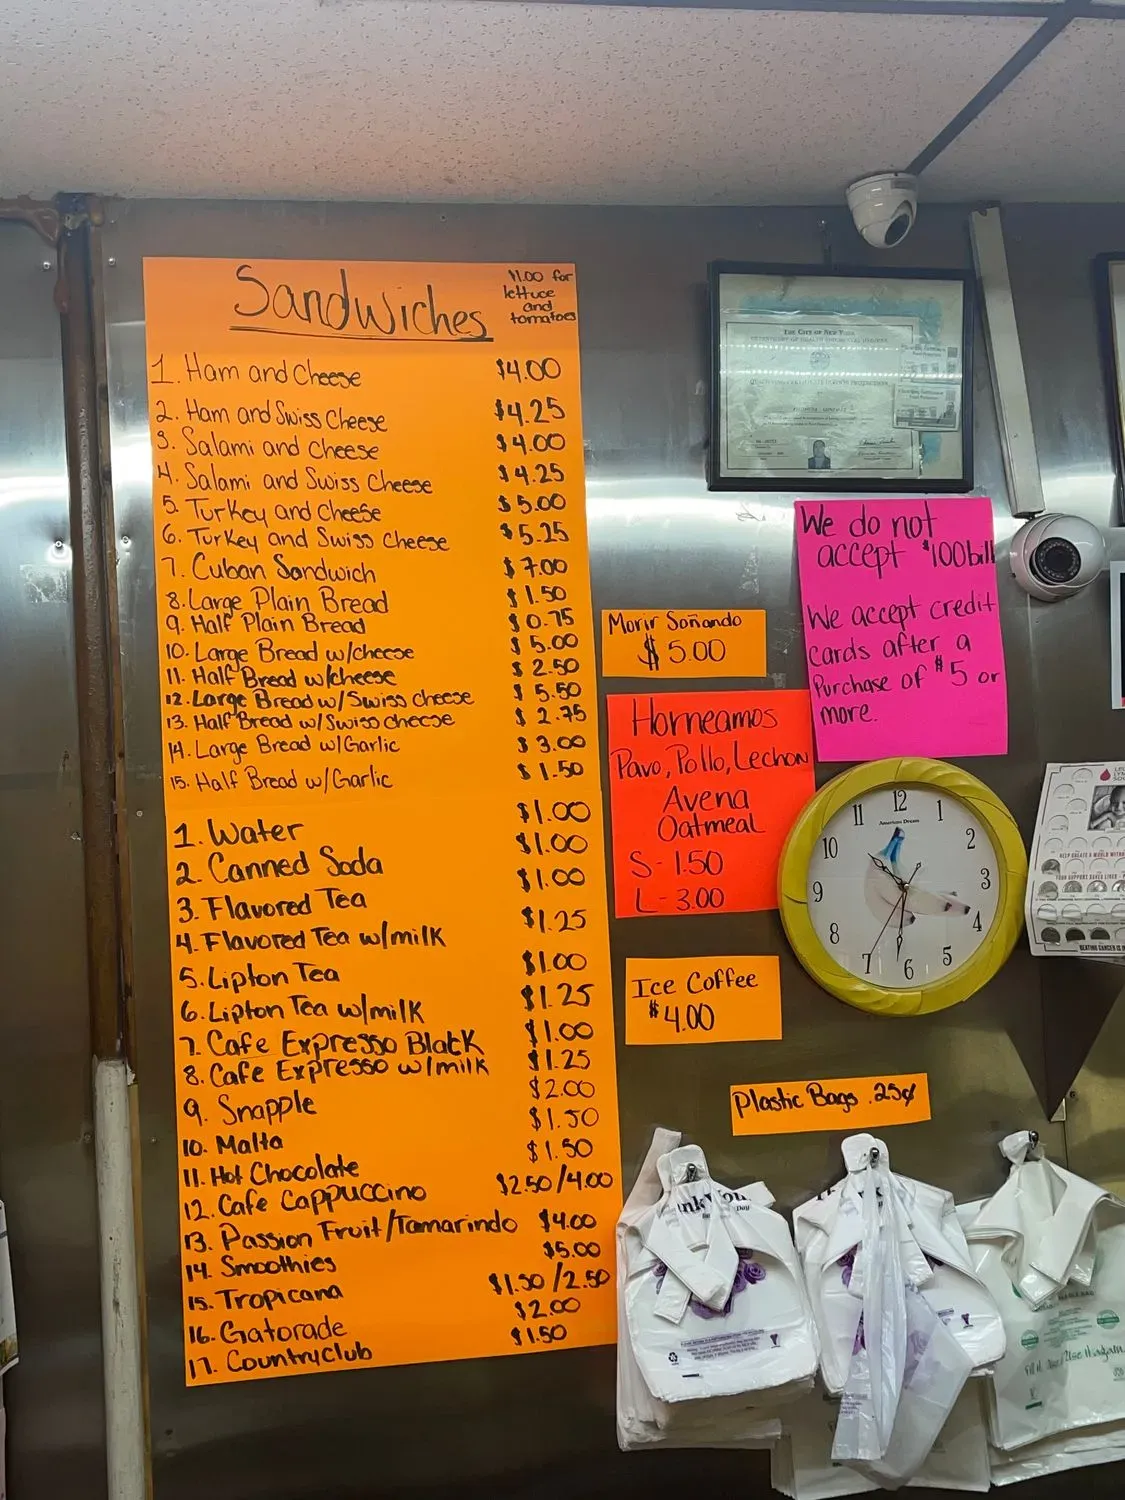 Sandwiches
$1.00 for
lettuce
and
tomatoes
1. Ham and Cheese $4.00
2. Ham and Swiss Cheese $4.25
3. Salami and Cheese $4.00
4. Salami and Swiss Cheese $4.25
5. Turkey and Cheese $5.00
6. Turkey and Swiss Cheese $5.25
7. Cuban Sandwich $7.00
8. Large Plain Bread $1.50
9. Half Plain Bread $0.75
10. Large Bread w/cheese $5.00
11. Half Bread w/cheese $2.50
12. Large Bread w/Swiss cheese $5.50
13. Half Bread w/Swiss cheese $2.75
14. Large Bread w/Garlic $3.00
15. Half Bread w/Garlic $1.50
1. Water $1.00
2. Canned Soda $1.00
3. Flavored Tea $1.00
4. Flavored Tea w/milk $1.25
5. Lipton Tea $1.00
6. Lipton Tea w/milk $1.25
7. Cafe Expresso Black $1.00
8. Cafe Expresso w/milk $1.25
9. Snapple $2.00
10. Malta $1.50
11. Hot Chocolate $1.50
12. Cafe Cappuccino $2.50/4.00
13. Passion Fruit/Tamarindo $4.00
14. Smoothies $5.00
15. Tropicana $1.50/2.50
16. Gatorade $2.00
17. Countryclub $1.50
THE CITY OF NEW YORK
We do not
accept $100 bill
We accept credit
cards after a
Purchase of $5 or
more.
Morir Soñando
$5.00
Horneamos
Pavo, Pollo, Lechon
Avena
Oatmeal
S - 1.50
L - 3.00
American Dream
12
1
2
3
4
5
6
7
8
9
10
11
Ice Coffee
$4.00
Plastic Bags .25¢